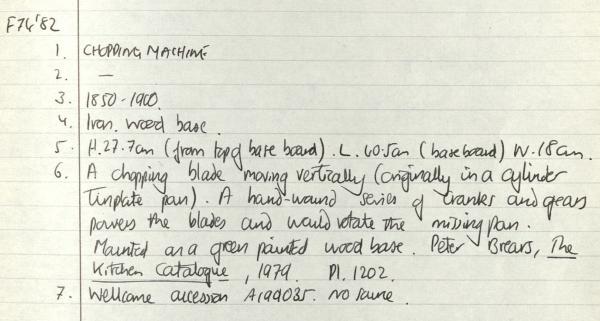 F74'82
1. CHOPPING MACHINE
2. —
3. 1850-1900.
4. Iron. wood base.
5. H.27.7cm (from top of base board). L. 40.5cm (base board) W.18cm.
6. A chopping blade moving vertically (originally in a cylinder
Tinplate pan). A hand-wound series of cranks and gears
powers the blades and would rotate the missing pan.
Mounted on a green painted wood base. Peter Brears, The
Kitchen Catalogue, 1979. Pl. 1202.
7. Wellcome accession A199035. no source.